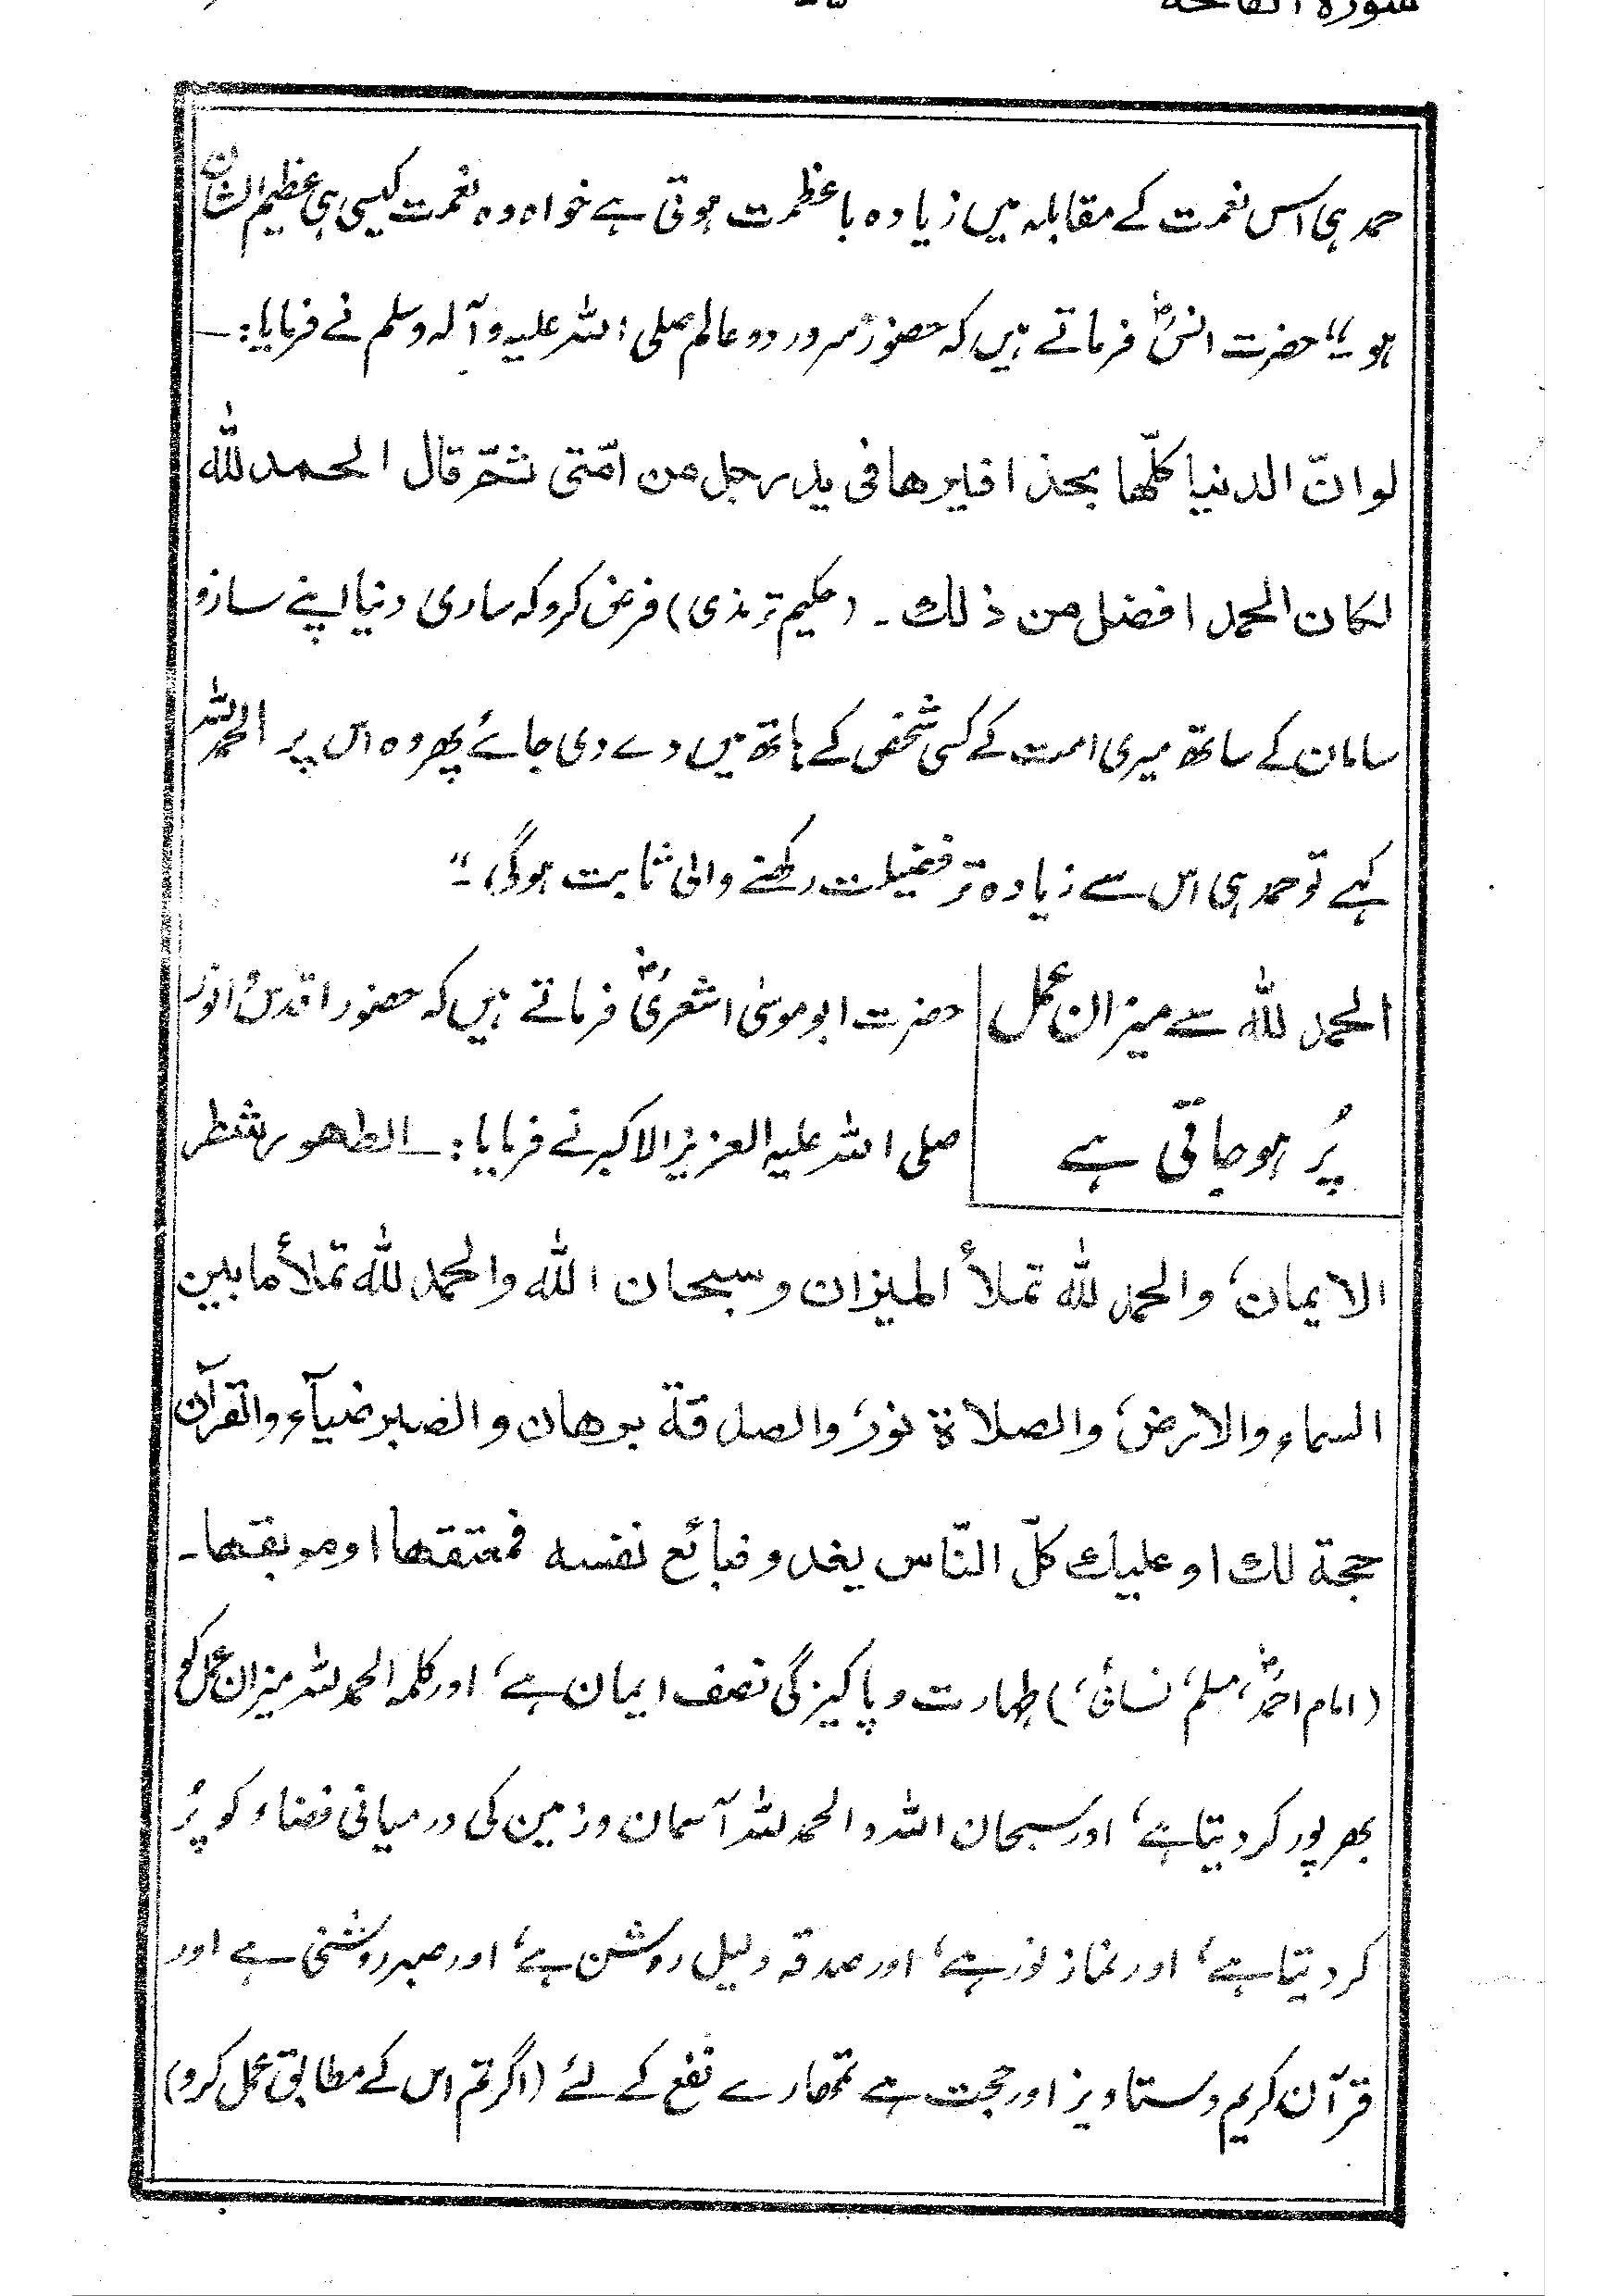 سورة الفاتحة
حمد ہی اس نعمت کے مقابلہ میں زیادہ باعظمت ہوتی ہے خواہ وہ نعمت کیسی ہی عظیم الشان
ہو۔" حضرت انسؓ فرماتے ہیں کہ حضورؐ سرور دو عالم صلی اللہ علیہ وآلہ وسلم نے فرمایا:۔
لوان الدنیا کلّھا بحذافیرھا فی ید رجل من امّتی ثمّ قال الحمد للّٰہ
لکان الحمد افضل من ذلك۔ (حکیم ترمذی) فرض کرو کہ ساری دنیا اپنے سازو
سامان کے ساتھ میری امت کے کسی شخص کے ہاتھ میں دے دی جائے پھر وہ اس پر الحمدللہ
کہے تو حمد ہی اس سے زیادہ تر فضیلت رکھنے والی ثابت ہوگی۔"
الحمد للّٰہ سے میزان عمل حضرت ابوموسیٰ اشعریؓ فرماتے ہیں کہ حضور اقدسؐ انور
پُر ہوجاتی ہے صلی اللہ علیہ العزیز الاکبر نے فرمایا:۔ الطھور شطر
الایمان، والحمد للّٰہ تملأ المیزان وسبحان اللّٰہ والحمد للّٰہ تملأ مابین
السماء والارض، والصلاة نور، والصدقة برھان والصبر ضیآء والقرآن
حجة لك او علیك کلّ النّاس یغدو فبائع نفسه فمعتقھا او موبقھا۔
(امام احمدؒ، مسلم، نسائی،) طہارت و پاکیزگی نصف ایمان ہے، اور کلمہ الحمدللہ میزان عمل کو
بھرپور کر دیتا ہے، اور سبحان اللہ والحمدللہ آسمان و زمین کی درمیانی فضاء کو پُر
کر دیتا ہے، اور نماز نور ہے، اور صدقہ دلیل روشن ہے، اور صبر روشنی ہے اور
قرآن کریم دستاویز اور حجت ہے تمھارے نفع کے لئے (اگر تم اس کے مطابق عمل کرو)